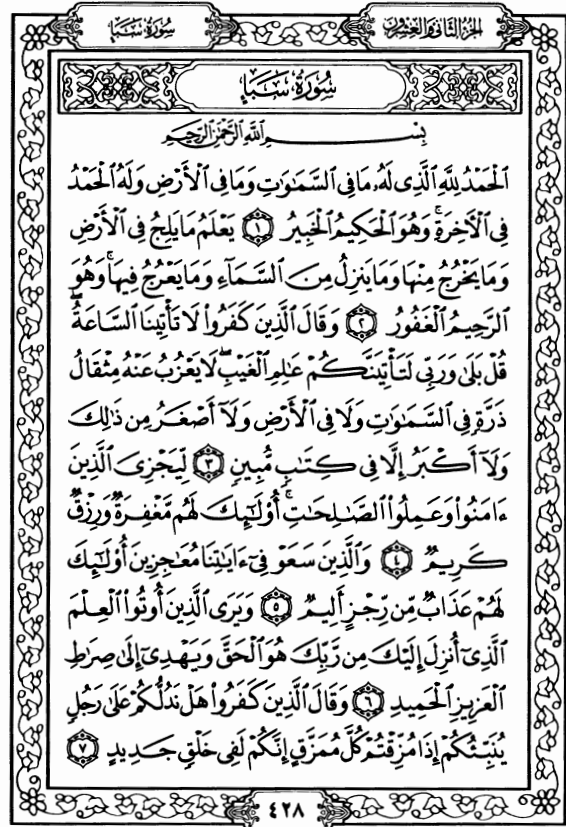 الجزء الثانى والعشرون
سُورَةُ سَبَإٍ
سُورَةُ سَبَإٍ
بِسْمِ ٱللَّهِ ٱلرَّحْمَٰنِ ٱلرَّحِيمِ
ٱلْحَمْدُ لِلَّهِ ٱلَّذِى لَهُۥ مَا فِى ٱلسَّمَٰوَٰتِ وَمَا فِى ٱلْأَرْضِ وَلَهُ ٱلْحَمْدُ
فِى ٱلْأَخِرَةِ ۚ وَهُوَ ٱلْحَكِيمُ ٱلْخَبِيرُ ١ يَعْلَمُ مَا يَلِجُ فِى ٱلْأَرْضِ
وَمَا يَخْرُجُ مِنْهَا وَمَا يَنزِلُ مِنَ ٱلسَّمَآءِ وَمَا يَعْرُجُ فِيهَا ۚ وَهُوَ
ٱلرَّحِيمُ ٱلْغَفُورُ ٢ وَقَالَ ٱلَّذِينَ كَفَرُوا۟ لَا تَأْتِينَا ٱلسَّاعَةُ ۖ
قُلْ بَلَىٰ وَرَبِّى لَتَأْتِيَنَّكُمْ عَٰلِمِ ٱلْغَيْبِ ۖ لَا يَعْزُبُ عَنْهُ مِثْقَالُ
ذَرَّةٍ فِى ٱلسَّمَٰوَٰتِ وَلَا فِى ٱلْأَرْضِ وَلَآ أَصْغَرُ مِن ذَٰلِكَ
وَلَآ أَكْبَرُ إِلَّا فِى كِتَٰبٍ مُّبِينٍ ٣ لِّيَجْزِىَ ٱلَّذِينَ
ءَامَنُوا۟ وَعَمِلُوا۟ ٱلصَّٰلِحَٰتِ ۚ أُو۟لَٰٓئِكَ لَهُم مَّغْفِرَةٌ وَرِزْقٌ
كَرِيمٌ ٤ وَٱلَّذِينَ سَعَوْ فِىٓ ءَايَٰتِنَا مُعَٰجِزِينَ أُو۟لَٰٓئِكَ
لَهُمْ عَذَابٌ مِّن رِّجْزٍ أَلِيمٌ ٥ وَيَرَى ٱلَّذِينَ أُوتُوا۟ ٱلْعِلْمَ
ٱلَّذِىٓ أُنزِلَ إِلَيْكَ مِن رَّبِّكَ هُوَ ٱلْحَقَّ وَيَهْدِىٓ إِلَىٰ صِرَٰطِ
ٱلْعَزِيزِ ٱلْحَمِيدِ ٦ وَقَالَ ٱلَّذِينَ كَفَرُوا۟ هَلْ نَدُلُّكُمْ عَلَىٰ رَجُلٍ
يُنَبِّئُكُمْ إِذَا مُزِّقْتُمْ كُلَّ مُمَزَّقٍ إِنَّكُمْ لَفِى خَلْقٍ جَدِيدٍ ٧
٤٢٨